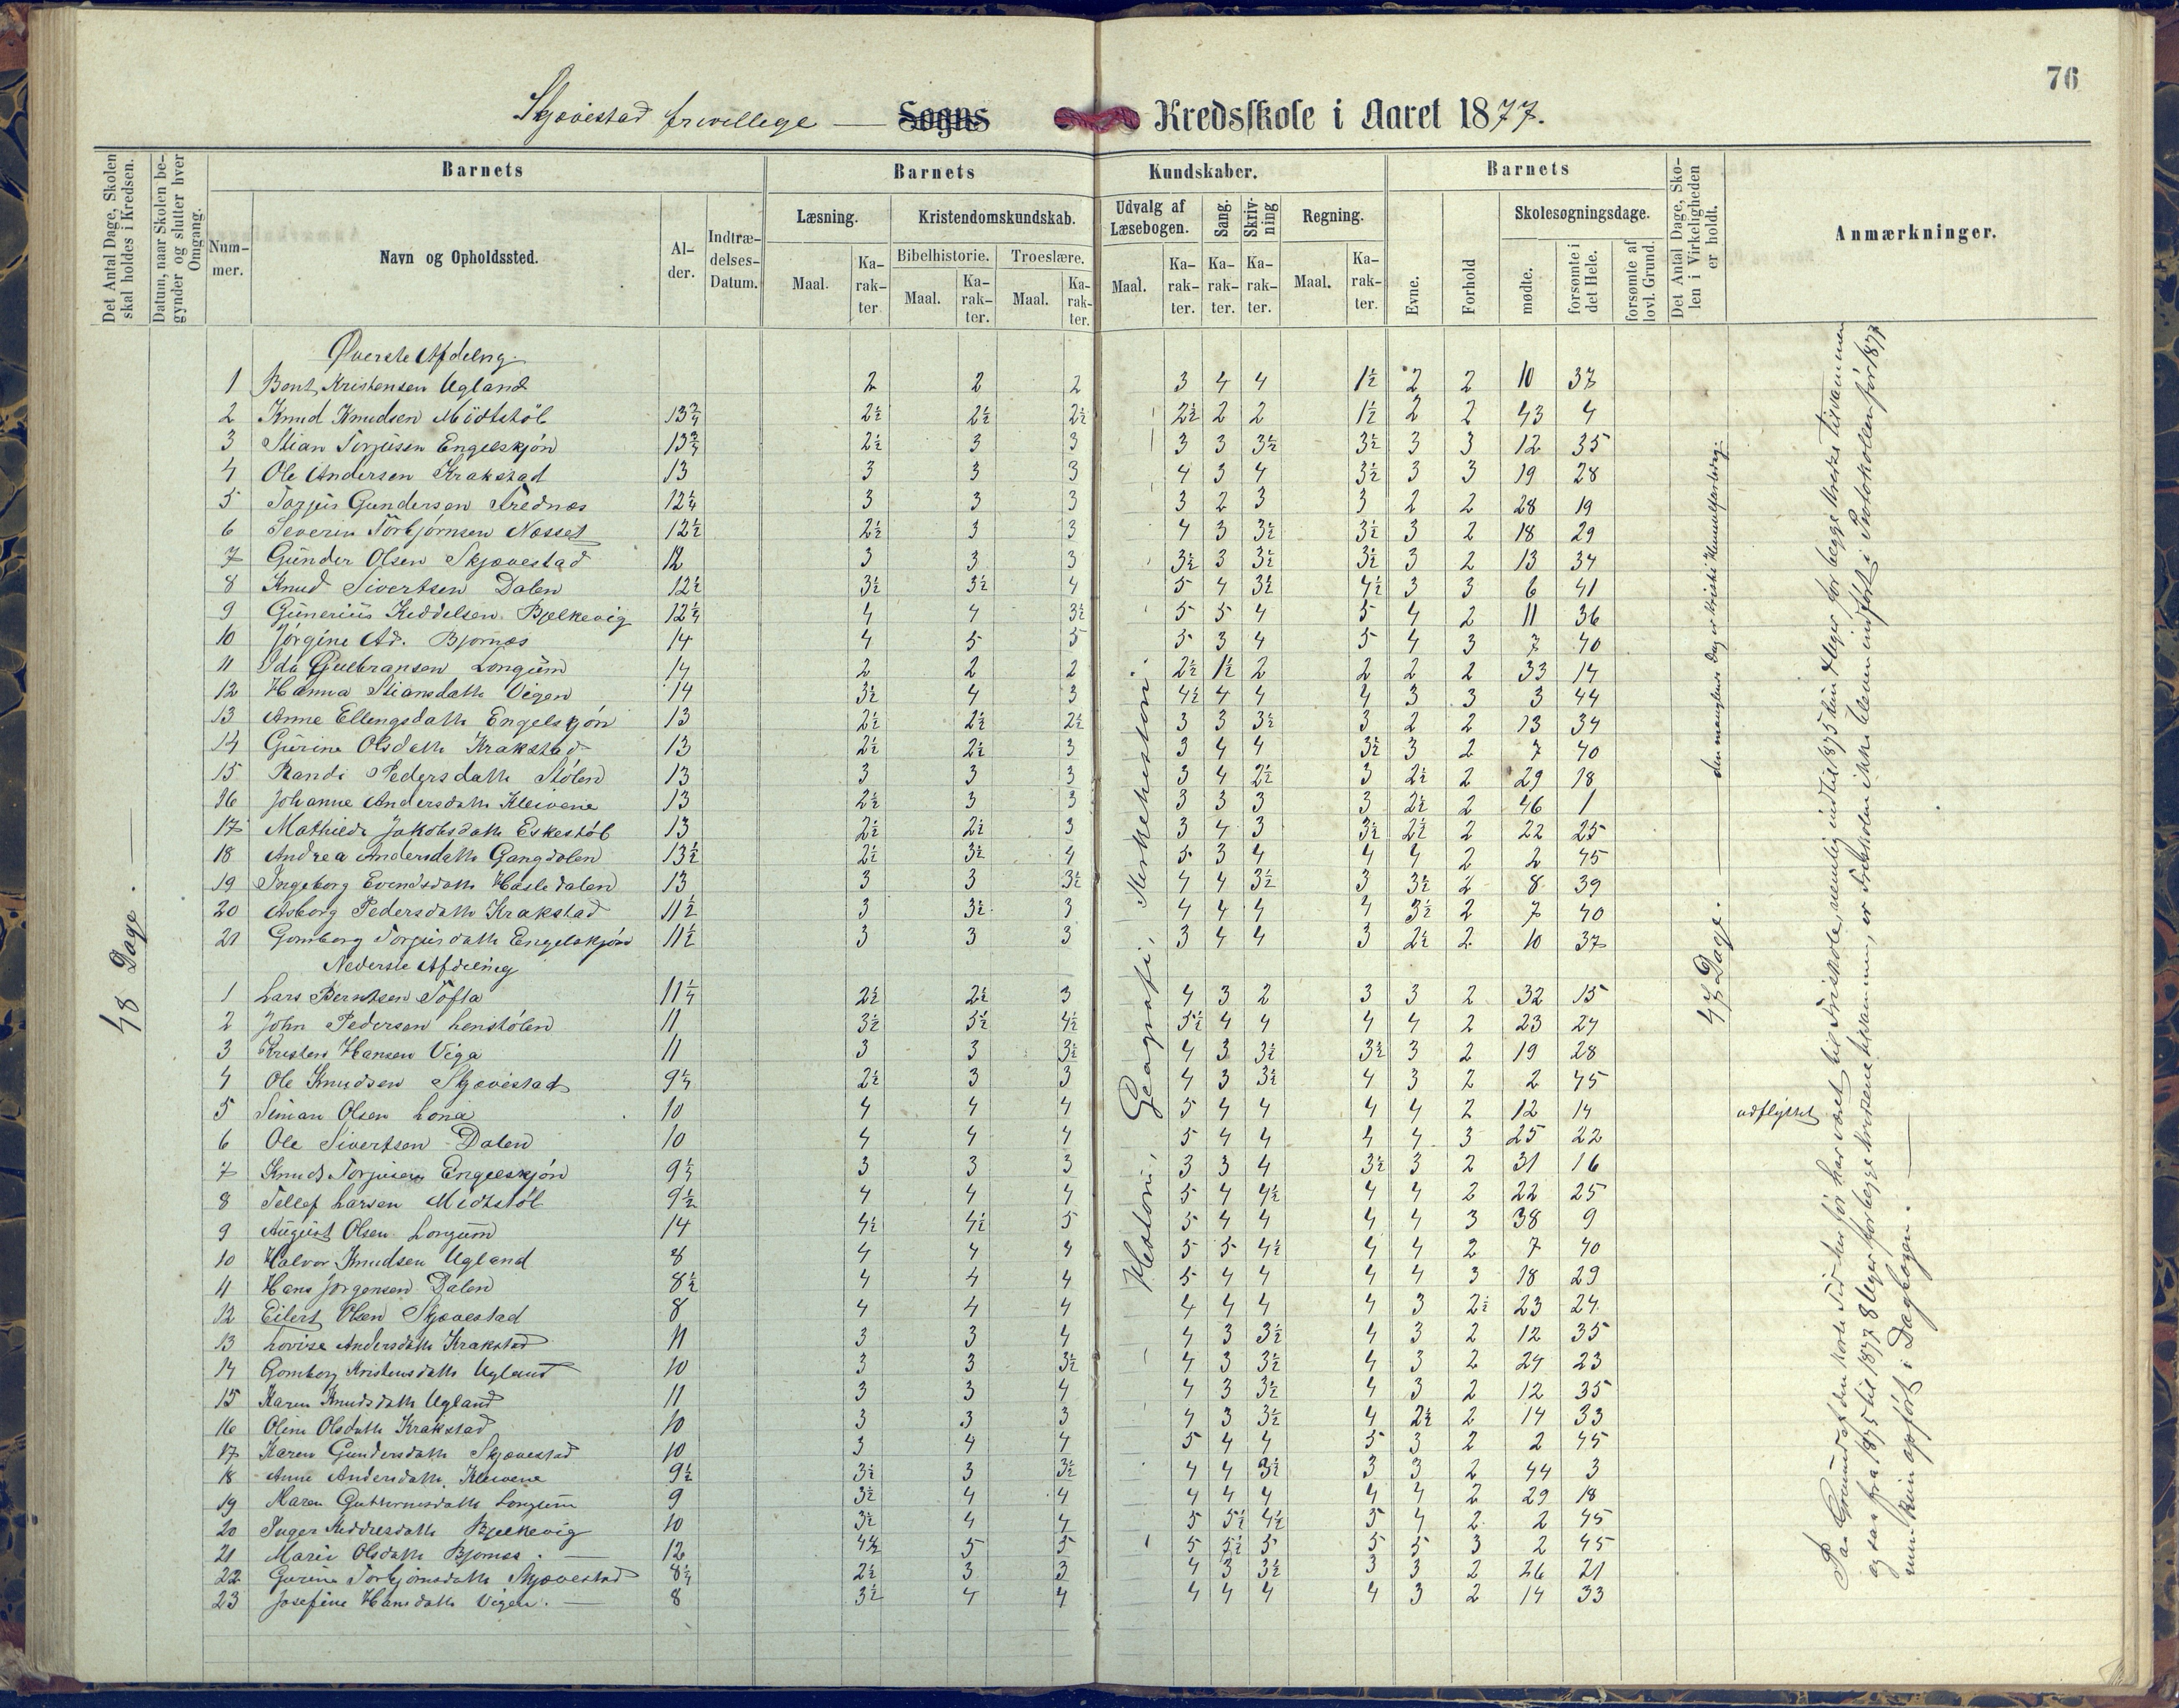 76
Skjævestad frivillege — Sogns Kredsskole i Aaret 1877.
Det Antal Dage, Skolen skal holdes i Kredsen.
Datum, naar Skolen begynder og slutter hver Omgang.
Barnets
Nummer.
Navn og Opholdssted.
Alder.
Indtrædelses-Datum.
Barnets Kundskaber.
Læsning.
Maal.
Karakter
Kristendomskundskab.
Bibelhistorie.
Maal.
Karakter.
Troeslære.
Maal.
Karakter.
Udvalg af Læsebogen.
Maal.
Karakter.
Sang.
Karakter.
Skrivning
Karakter.
Regning.
Maal.
Karakter.
Barnets
Evne.
Forhold
Skolesøgningsdage.
mødte.
forsømte i det Hele.
forsømte af lovl. Grund.
Det Antal Dage, Skolen i Virkeligheden er holdt.
Anmærkninger.
48 Dage.
Øverste Afdeling.
1 Bent Kristensen Ugland 2 2 2 3 4 4 1½ 2 2 10 37
2 Knud Knudsen Midtstøl 13¾ 2½ 2½ 2½ 2½ 2 2 1½ 2 2 43 4
3 Stian Torjusen Engelskjøn 13¾ 2½ 3 3 3 3 3½ 3½ 3 3 12 35
4 Ole Andersen Krakstad 13 3 3 3 4 3 4 3½ 3 3 19 28
5 Torjus Gundersen Trednæs 12¼ 3 3 3 3 2 3 3 2 2 28 19
6 Severin Torbjørnsen Næsset 12½ 2½ 3 3 4 3 3½ 3½ 3 2 18 29
7 Gunder Olsen Skjævestad 12 3 3 3 3½ 3 3½ 3½ 3 2 13 34
8 Knud Sivertsen Dalen 12½ 3½ 3½ 4 5 4 3½ 4½ 3 3 6 41
9 Gunerius Keddelsen Bjelkevig 12¼ 4 4 3½ 5 5 4 5 4 2 11 36
10 Jørgine Ad. Bjornæs 14 4 5 5 5 3 4 5 4 3 7 40
11 Ida Gulbransen Longum 14 2 2 2 2½ 1½ 2 2 2 2 33 14
12 Hanna Stiansdatter Vigen 14 3½ 4 3 4½ 4 4 4 3 3 3 44
13 Anne Ellengsdatter Engelskjøn 13 2½ 2½ 2½ 3 3 3½ 3 2 2 13 34
14 Gurine Olsdatter Krakstad 13 2½ 2½ 3 3 4 4 3½ 3 2 7 40
15 Randi Pedersdatter Stølen 13 3 3 3 3 4 2½ 3 2½ 2 29 18
16 Johanne Andersdatter Kleivene 13 2½ 3 3 3 3 3 3 2½ 2 46 1
17 Mathilde Jakobsdatter Eskestøl 13 2½ 2½ 3 3 4 3 3½ 2½ 2 22 25
18 Andrea Andersdatter Gangdalen 13½ 2½ 3½ 4 5 3 4 4 4 2 2 45
19 Ingeborg Evendsdatter Hasledalen 13 3 3 3½ 4 4 3½ 3 3½ 2 8 39
20 Asborg Pedersdatter Krakstad 11½ 3 3½ 3 4 4 4 4 3½ 2 7 40
21 Gomborg Torjusdatter Engelskjøn 11½ 3 3 3 3 4 4 3 2½ 2 10 37
Nederste Afdeling
1 Lars Berntsen Tofta 11¼ 2½ 2½ 3 4 3 2 3 3 2 32 15
2 John Pedersen Lenstølen 11 3½ 3½ 4½ 5½ 4 4 4 4 2 23 24
3 Kristen Hansen Viga 11 3 3 3½ 4 3 3½ 3½ 3 2 19 28
4 Ole Knudsen Skjævestad 9¼ 2½ 3 3 4 3 3½ 4 3 2 2 45
5 Simon Olsen Lona 10 4 4 4 5 4 4 4 4 2 12 14 udflyttet
6 Ole Sivertsen Dalen 10 4 4 4 5 4 4 4 4 3 25 22
7 Knud Torjusen Engelskjøn 9¼ 3 3 3 3 3 4 3½ 3 2 31 16
8 Tellef Larsen Midtstøl 9½ 4 4 4 5 4 4½ 4 4 2 22 25
9 August Olsen Longum 14 4½ 4½ 5 5 4 4 4 4 3 38 9
10 Halvor Knudsen Ugland 8 4 4 4 5 5 4½ 4 4 2 7 40
11 Hans Jørgensen Dalen 8½ 4 4 4 5 4 4 4 4 3 18 29
12 Eilert Olsen Skjævestad 8 4 4 4 4 4 4 4 3 2½ 23 24
13 Lovise Andersdatter Krakstad 11 3 3 4 4 3 3½ 4 3 2 12 35
14 Gomborg Kristensdatter Ugland 10 3 3 3½ 4 3 3½ 4 3 2 24 23
15 Karen Knudsdatter Ugland 11 3 3 4 4 3 3½ 4 3 2 12 35
16 Oline Olsdatter Krakstad 10 3 3 3 4 3 3½ 4 2½ 2 14 33
17 Karen Gundersdatter Skjævestad 10 3 4 4 5 4 4 5 3 2 2 45
18 Anne Andersdatter Kleivene 9½ 3½ 3 3½ 4 4 3½ 3 3 2 44 3
19 Maren Guttormsdatter Longum 9 3½ 4 4 4 4 4 4 4 2 29 18
20 Inger Keddelsdatter Bjelkevig 10 3½ 4 4 5 5½ 4½ 5 4 2 2 45
21 Marie Olsdatter Bjornæs. — 12 4½ 5 5 5 5½ 5 5 5 3 2 45
22 Gurine Torbjørnsdatter Skjævestad 8¼ 2½ 3 3 4 3 3½ 3 3 2 26 21
23 Josefine Hansdatter Vigen. — 8 3½ 4 4 4 4 4 4 3 2 14 33
Historie, Geografi, Kirkehistorie.
47 Dage. — den manglende Dag er
Paa Grund af den korte Tid her før har været til Friskole, nemlig indtil 1875 kun 4 Uger for begge Kredse tilsammen
og saa fra 1875 til 1877 8 Uger for begge Kredsene tilsammen, er Friskolen ikke bleven indført i Protokollen før 1877
men kun opført i Dagbogen. —